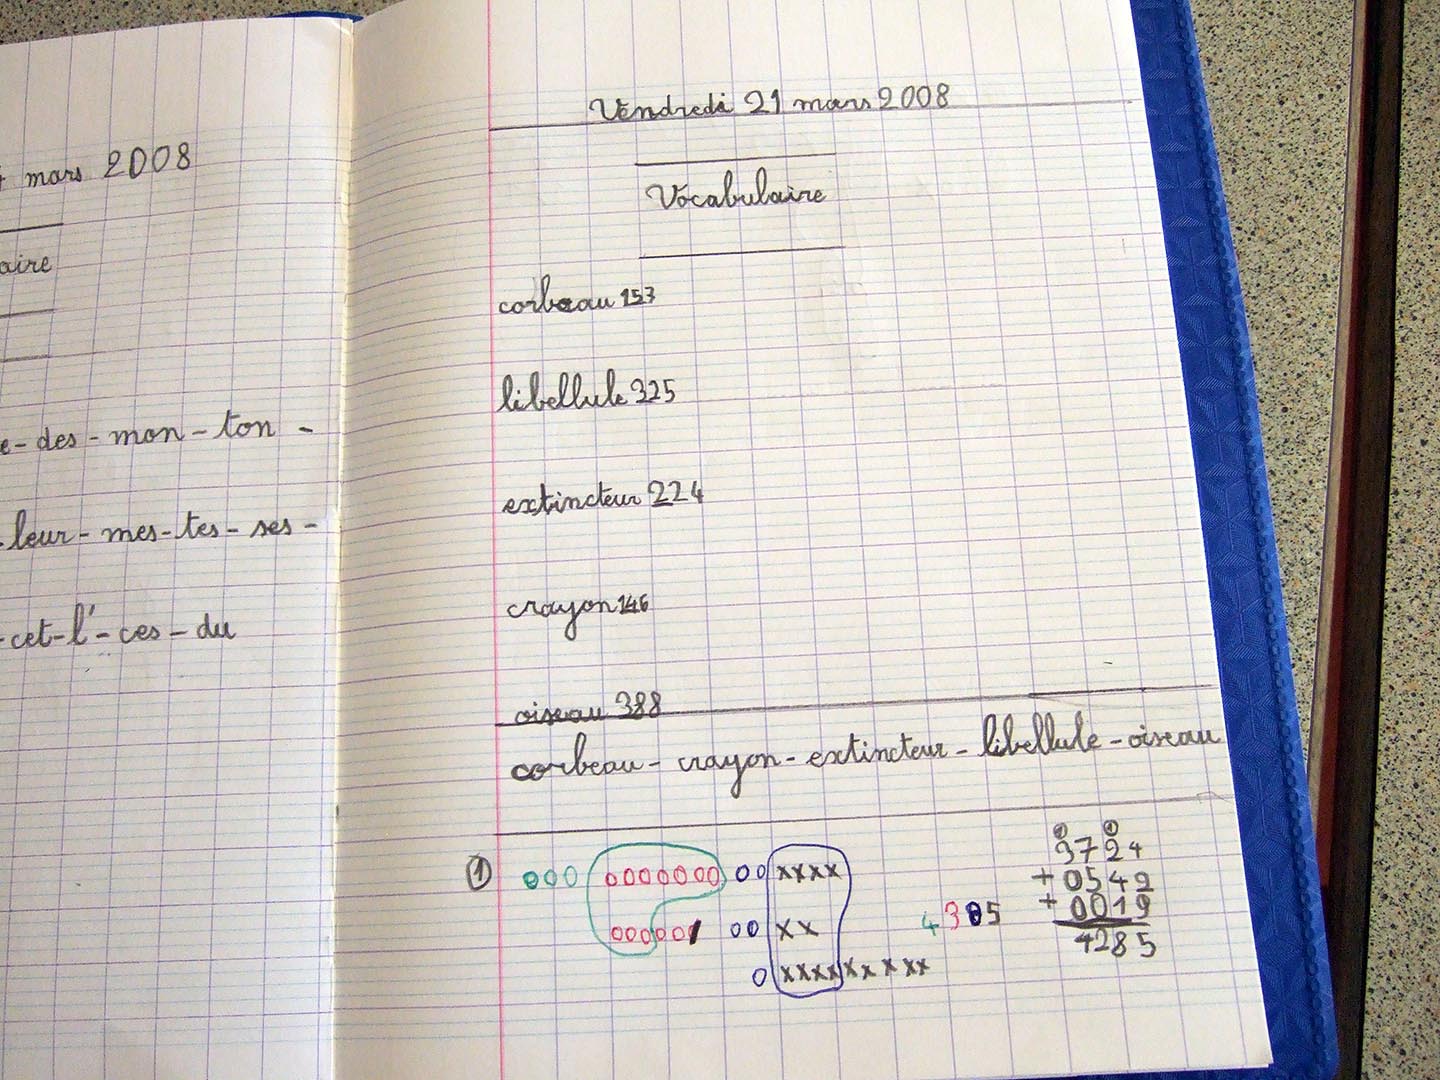 mars 2008
aire
e - des - mon - ton -
- leur - mes - tes - ses -
- cet - l' - ces - du
Vendredi 21 mars 2008
Vocabulaire
corbeau 157
libellule 325
extincteur 224
crayon 146
oiseau 388
corbeau - crayon - extincteur - libellule - oiseau
1 000 0000000 00 xxxx
000001 00 xx
0 xxxxxxxxx
4385
1 1
3724
+ 0542
+ 0019
4285